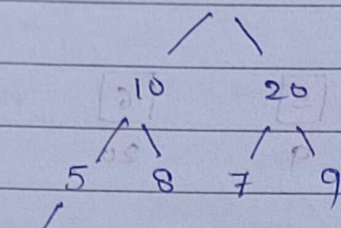 10 20
5 8 7 9